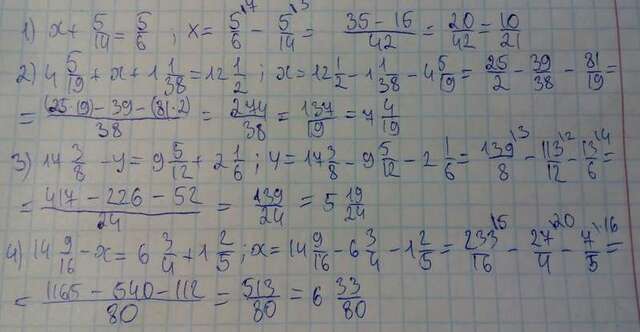 1) x + 5/14 = 5/6 ; x = 5/6 \7 - 5/14 \3 = (35 - 15)/42 = 20/42 = 10/21
2) 4 5/19 + x + 1 1/38 = 12 1/2 ; x = 12 1/2 - 1 1/38 - 4 5/19 = 25/2 - 39/38 - 81/19 =
= ((25·19) - 39 - (81·2))/38 = 274/38 = 137/19 = 7 4/19
3) 17 3/8 - y = 9 5/12 + 2 1/6 ; y = 17 3/8 - 9 5/12 - 2 1/6 = 139/8 \3 - 113/12 \2 - 13/6 \4 =
= (417 - 226 - 52)/24 = 139/24 = 5 19/24
4) 14 9/16 - x = 6 3/4 + 1 2/5 ; x = 14 9/16 - 6 3/4 - 1 2/5 = 233/16 \5 - 27/4 \20 - 7/5 \·16 =
= (1165 - 540 - 112)/80 = 513/80 = 6 33/80